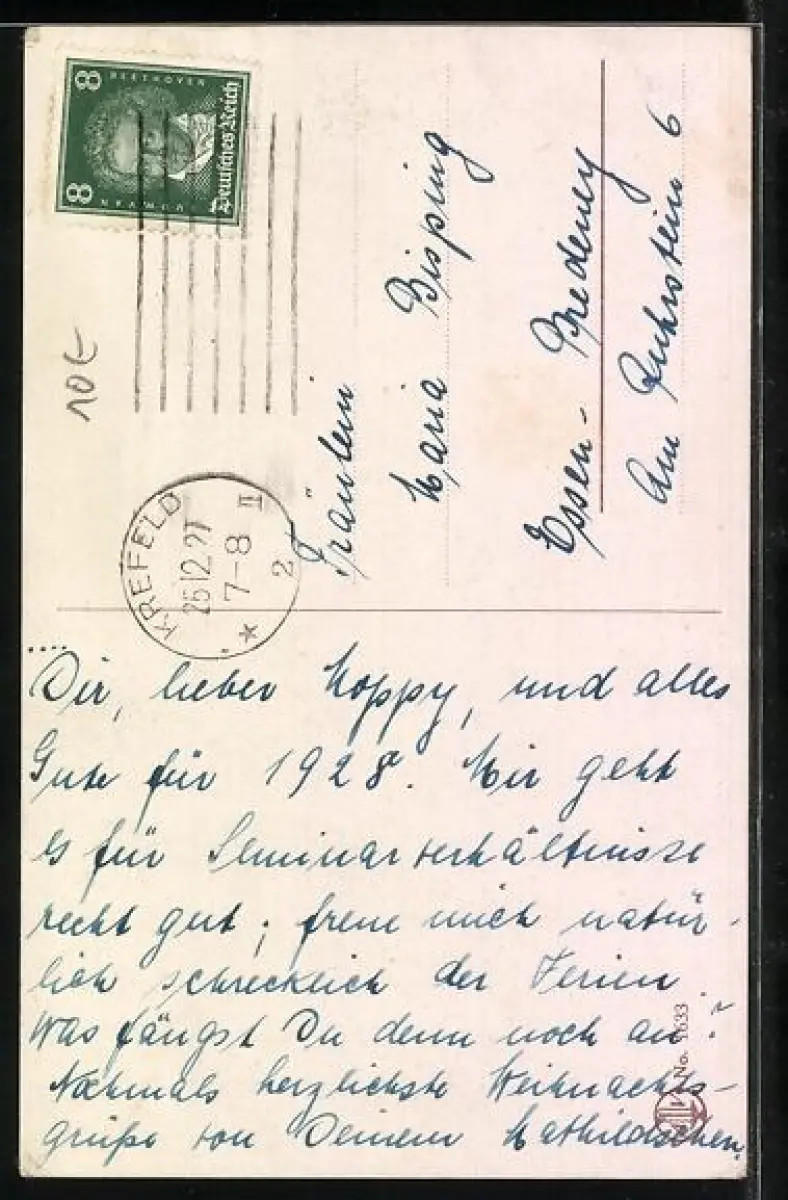 8 BEETHOVEN
8 LUDWIG VAN
Deutsches Reich
10 €
KREFELD
26.12.27
7-8 II
* 2
Fräulein
Maria Bisping
Essen-Bredeney
Am Ruhrstein 6
....
Dir, lieber Moppy, und alles
Gute für 1928. Mir geht
es für Seminarverhältnisse
recht gut; freue mich natür-
lich schrecklich der Ferien.
Was fängst Du denn noch an?
Nochmals herzlichste Weihnachts-
grüße von Deinem Mathildchen.
No. 1633